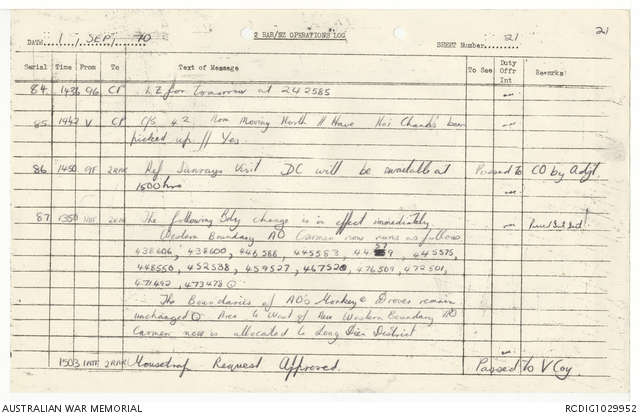 2 RAR/NZ OPERATIONS LOG
21
DATE 1 SEPT 70
SHEET Number 21
Serial Time From To Text of Message To See Duty Offr Int Remarks
84 1436 96 CP LZ for tomorrow at 242585
85 1442 V CP C/S 42 Now Moving North // Have his Chanks been
picked up // Yes.
86 1450 9F 2RAR Ref Sunrays Visit DC will be available at Passed to CO by Adjt
1500 hrs
87 1350 2RAR The following Bdry change is in effect immediately
Western Boundary AO Carmen now runs as follows
438606, 438600, 446586, 445583, 445575,
448550, 452538, 459527, 467520, 476509, 472501,
471492, 473478
The Boundaries of AO's Monkey & Drover remain
unchanged Area to West of New Western Boundary AO
Carmen now is allocated to Long Dien District
1503 1ATF 2RAR Mousetrap Request Approved. Passed to V Coy.
AUSTRALIAN WAR MEMORIAL
RCDIG1029952